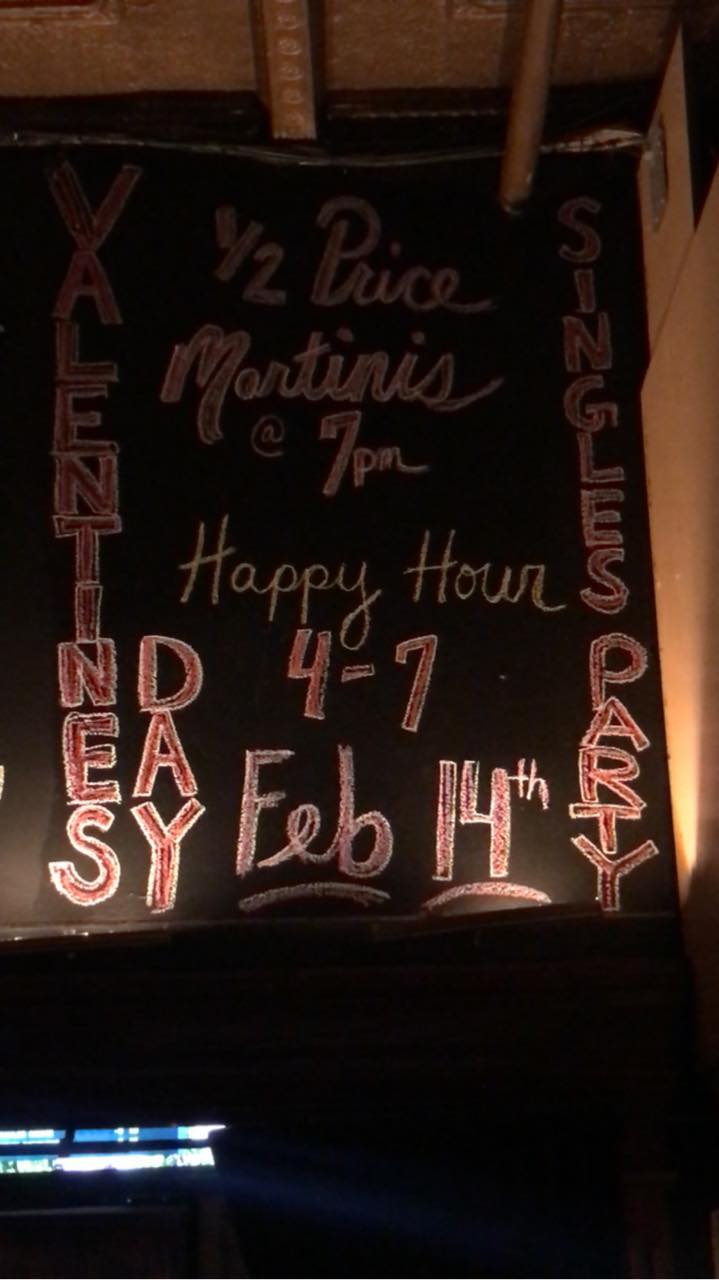 VALENTINES
DAY
1/2 Price
Martinis
@ 7pm
Happy Hour
4-7
Feb 14th
SINGLES PARTY